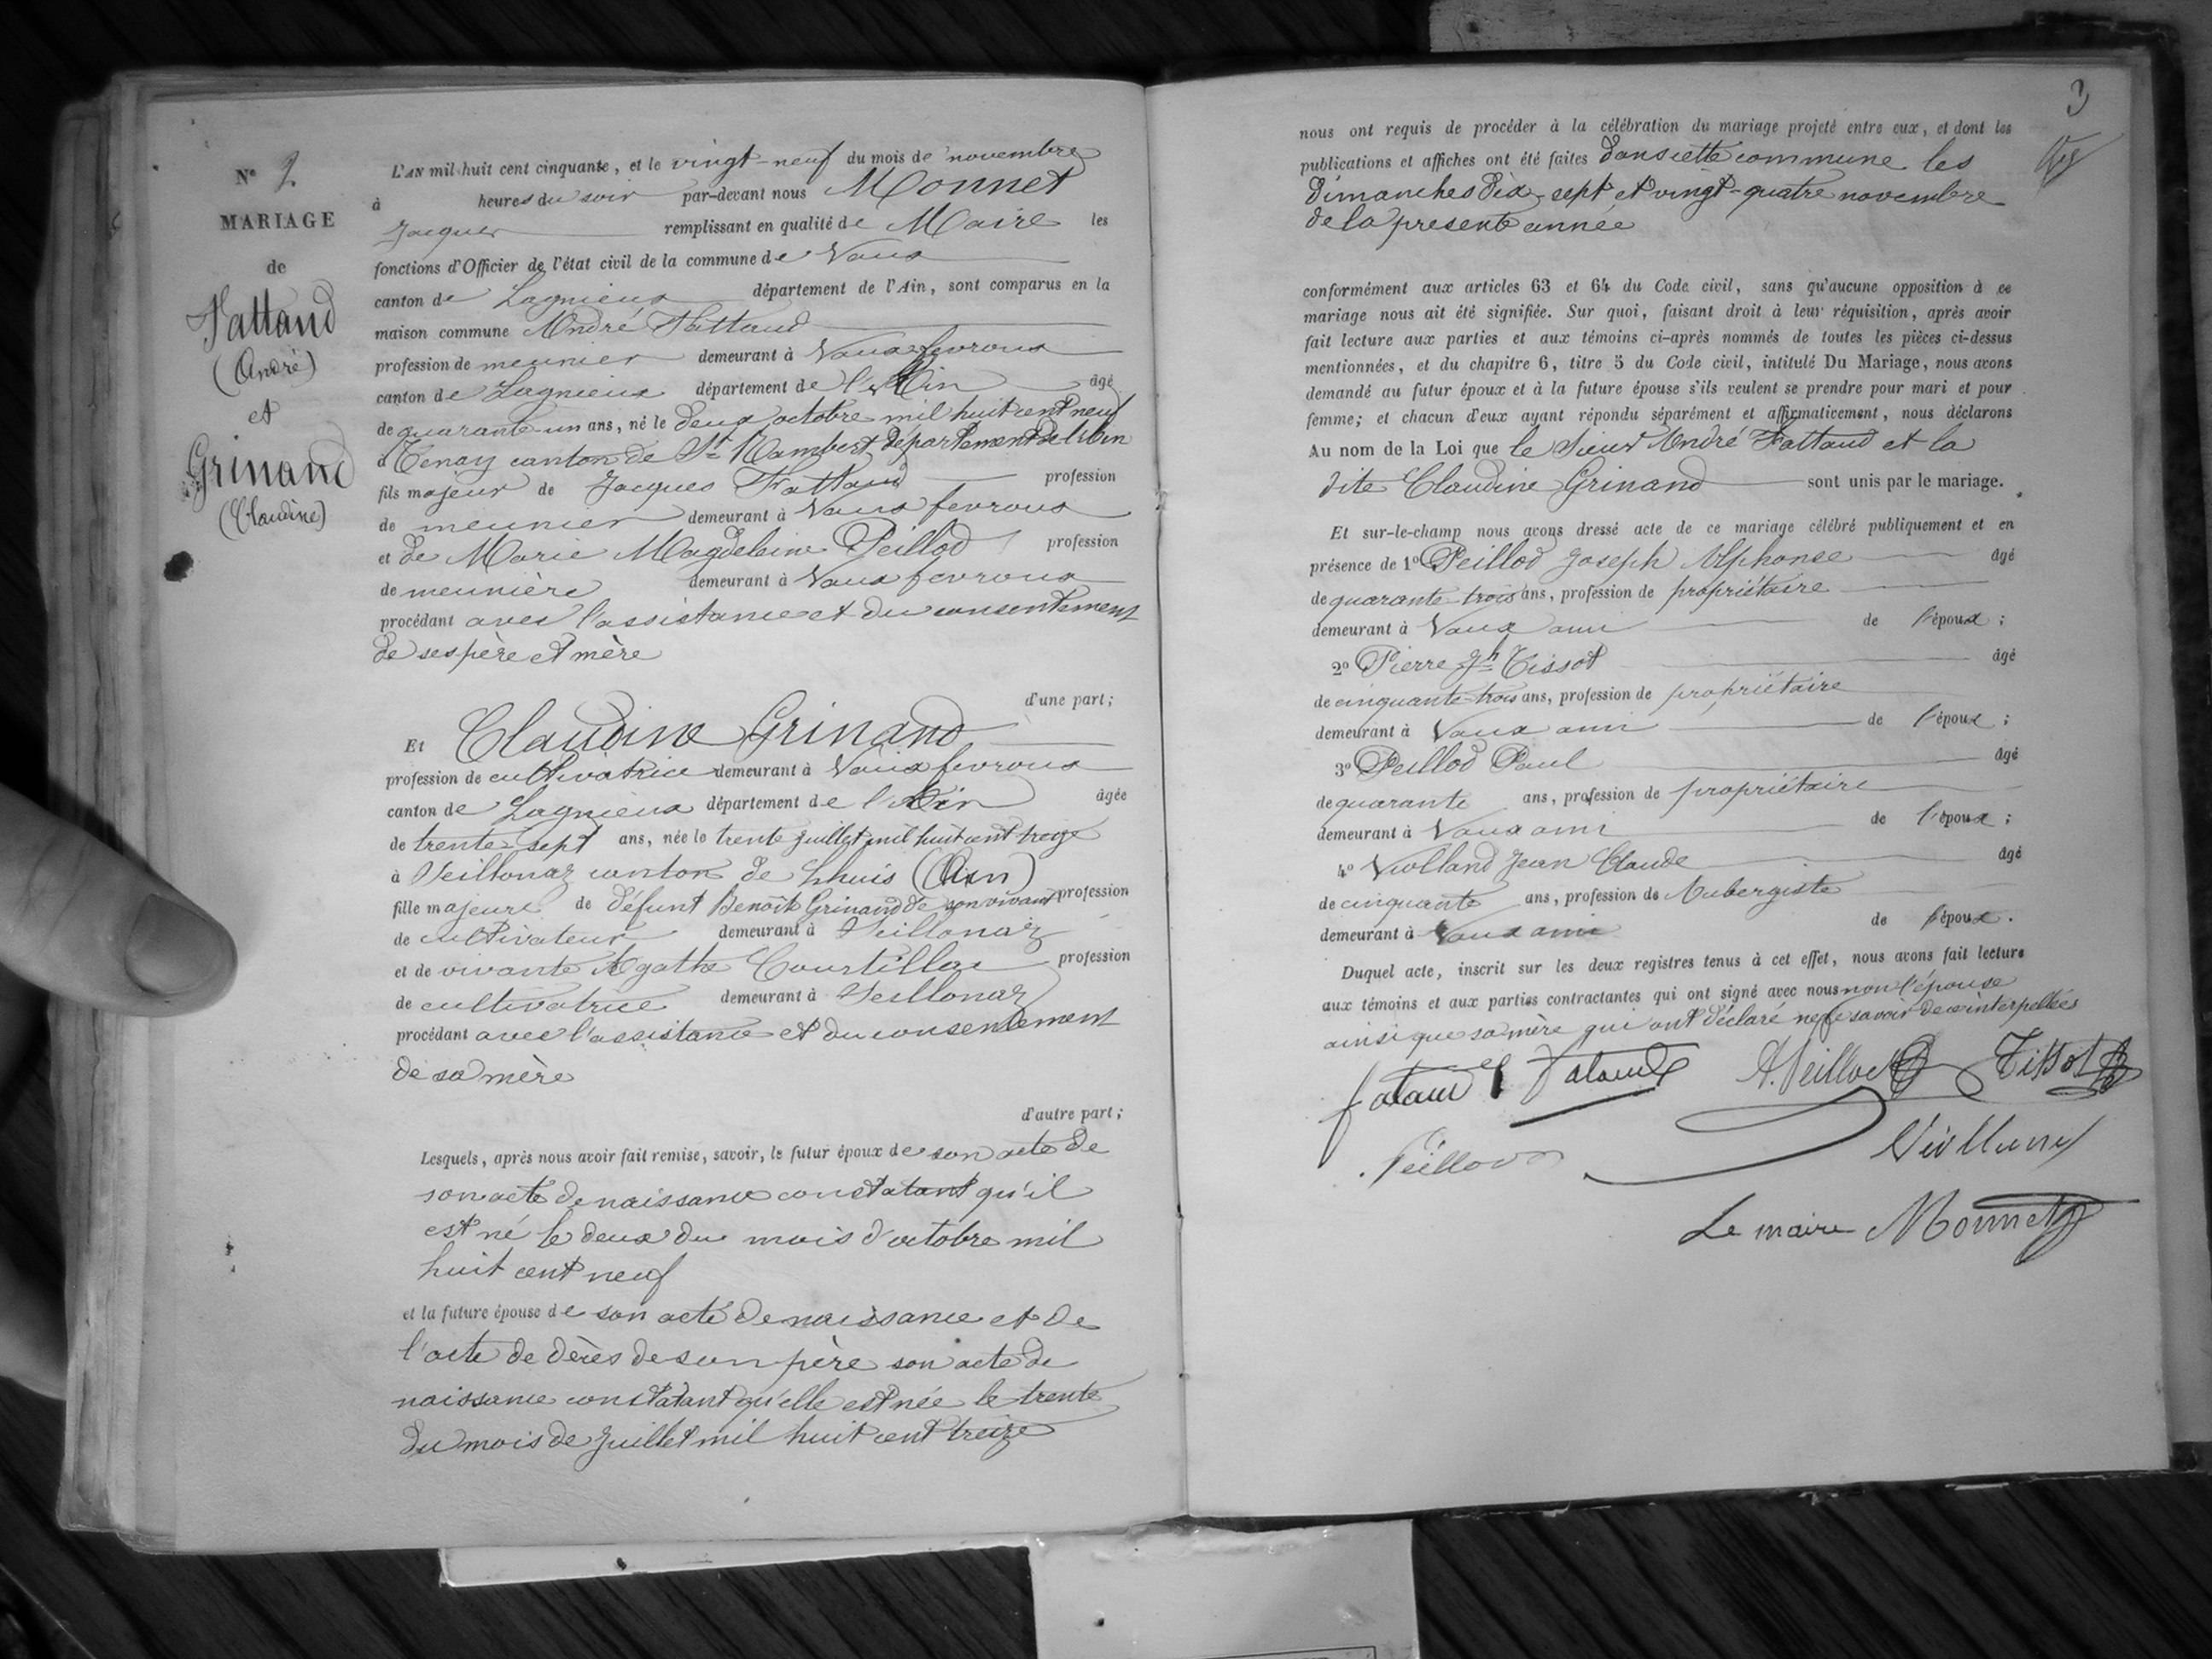 Nº 2
MARIAGE
de
Fattaud
(André)
et
Grinand
(Claudine)
L'AN mil huit cent cinquante, et le vingt-neuf du mois de novembre
à heures du soir par-devant nous Monnet
Jacques remplissant en qualité de Maire les
fonctions d'Officier de l'état civil de la commune de Vaux
canton de Lagnieux département de l'Ain, sont comparus en la
maison commune André Fattaud
profession de meunier demeurant à Vaux fevroux
canton de Lagnieux département de l'Ain âgé
de quarante-un ans, né le deux octobre mil huit cent neuf
à Tenay canton de St Rambert département de l'Ain
fils majeur de Jacques Fattaud profession
de meunier demeurant à Vaux fevroux
et de Marie Magdeleine Peillod profession
de meunière demeurant à Vaux fevroux
procédant avec l'assistance et du consentement
de ses père et mère
d'une part;
Et Claudine Grinand
profession de cultivatrice demeurant à Vaux fevroux
canton de Lagnieux département de l'Ain âgée
de trente-sept ans, née le trente juillet mil huit cent treize
à Seillonaz canton de Lhuis (Ain)
fille majeure de défunt Benoît Grinand de son vivant profession
de cultivateur demeurant à Seillonaz
et de vivante Agathe Courtillac profession
de cultivatrice demeurant à Seillonaz
procédant avec l'assistance et du consentement
de sa mère
d'autre part;
Lesquels, après nous avoir fait remise, savoir, le futur époux de son acte de
son acte de naissance constatant qu'il
est né le deux du mois d'octobre mil
huit cent neuf
et la future épouse de son acte de naissance et de
l'acte de décès de son père son acte de
naissance constatant qu'elle est née le trente
du mois de juillet mil huit cent treize
3
nous ont requis de procéder à la célébration du mariage projeté entre eux, et dont les
publications et affiches ont été faites dans cette commune les
dimanches dix-sept et vingt-quatre novembre
de la presente année
conformément aux articles 63 et 64 du Code civil, sans qu'aucune opposition à ce
mariage nous ait été signifiée. Sur quoi, faisant droit à leur réquisition, après avoir
fait lecture aux parties et aux témoins ci-après nommés de toutes les pièces ci-dessus
mentionnées, et du chapitre 6, titre 5 du Code civil, intitulé Du Mariage, nous avons
demandé au futur époux et à la future épouse s'ils veulent se prendre pour mari et pour
femme; et chacun d'eux ayant répondu séparément et affirmativement, nous déclarons
Au nom de la Loi que le sieur André Fattaud et la
dite Claudine Grinand sont unis par le mariage.
Et sur-le-champ nous avons dressé acte de ce mariage célébré publiquement et en
présence de 1º Peillod Joseph Alphonse âgé
de quarante-trois ans, profession de propriétaire
demeurant à Vaux ami de l'époux;
2º Pierre Jh Tissot âgé
de cinquante-trois ans, profession de propriétaire
demeurant à Vaux ami de l'époux;
3º Peillod Paul âgé
de quarante ans, profession de propriétaire
demeurant à Vaux ami de l'époux;
4º Violland Jean Claude âgé
de cinquante ans, profession de Aubergiste
demeurant à Vaux ami de l'époux.
Duquel acte, inscrit sur les deux registres tenus à cet effet, nous avons fait lecture
aux témoins et aux parties contractantes qui ont signé avec nous non l'épouse
ainsi que sa mère qui ont déclaré ne le savoir de ce interpellées
fataud fataud A. Peillod Tissot
Peillod Violland
Le maire Monnet